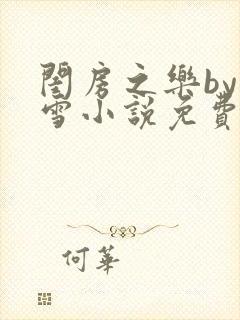 閨房之樂by
雪小說免費
何華